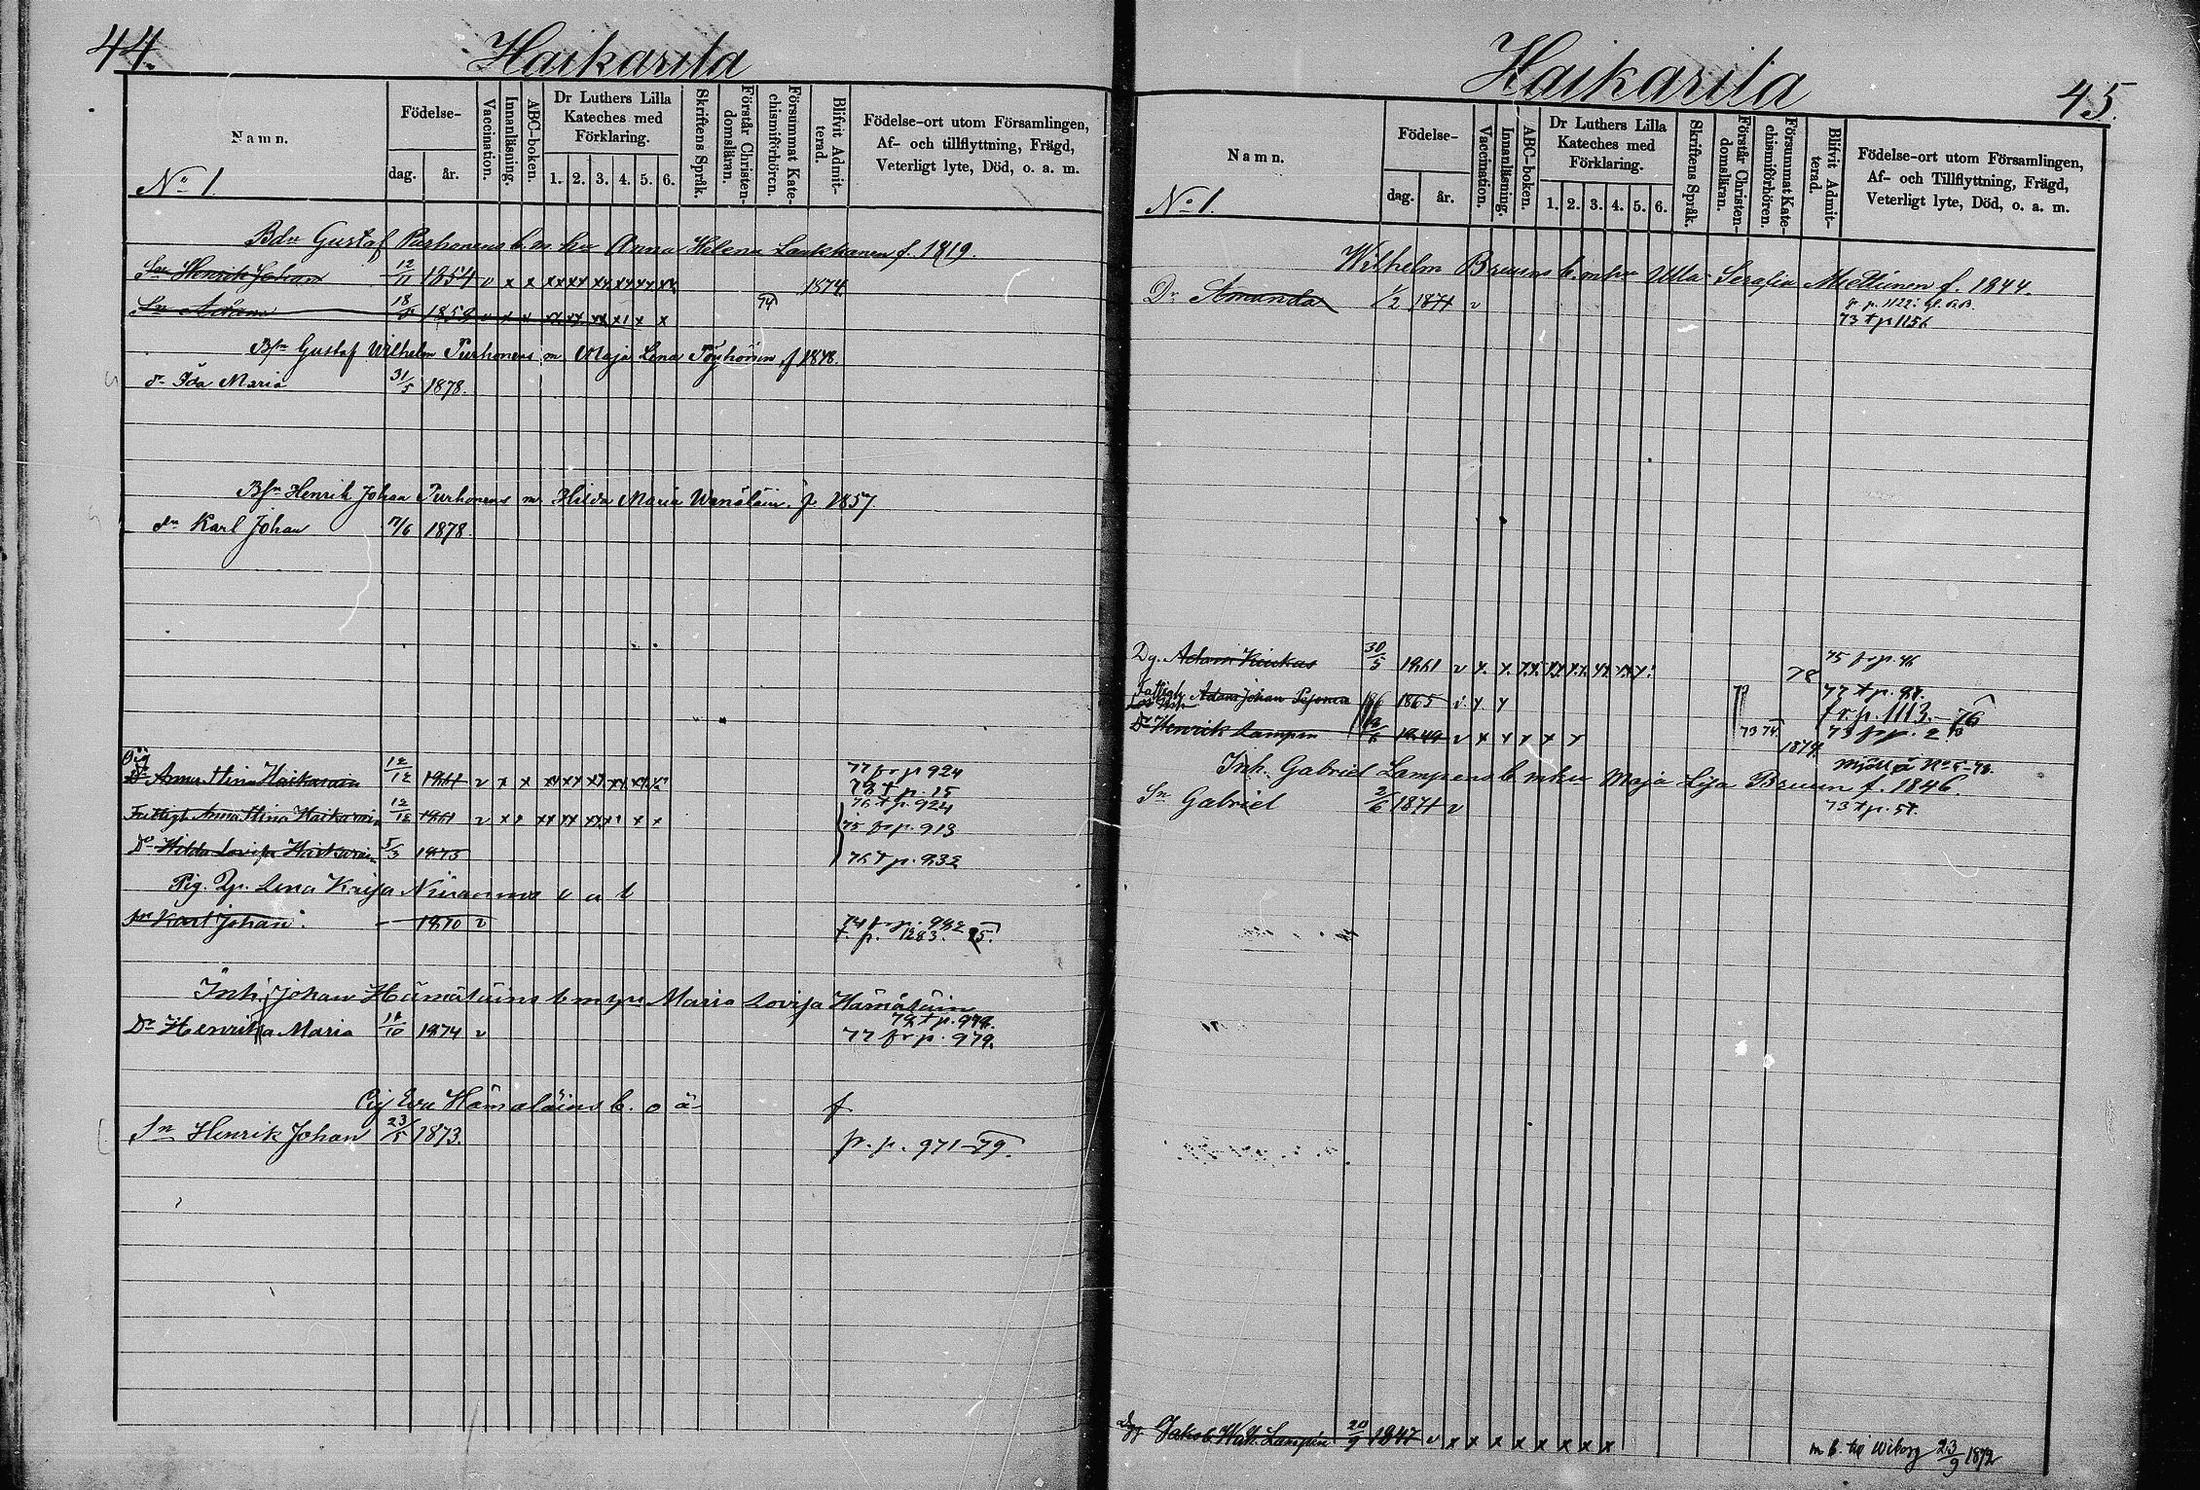 44.
Haikarila
Namn.
Födelse-
dag.
år.
Vaccination.
Innanläsning.
ABC-boken.
Dr Luthers Lilla Kateches med Förklaring.
1. 2. 3. 4. 5. 6.
Skriftens Språk.
Förstår Christendomsläran.
Försummat Katechismiförhören.
Blifvit Admitterad.
Födelse-ort utom Församlingen,
Af- och tillflyttning, Frägd,
Veterligt lyte, Död, o. a. m.
No 1.
Bdn Gustaf Purhonens b. m. hu Anna Helena Laukkanen f. 1819.
Sn Henrik Johan 12/11 1854 v x x xx xx xx xx xx xx 1874
Sn Adam 18/8 1859 v x x xx xx xx x1 x x 74
Bsn Gustaf Wilhelm Purhonens m. Maja Lena f 1848.
dr Ida Maria 31/5 1878.
Bsn Henrik Johan Purhonens m. Hilda Maria f 1857.
sn Karl Johan 11/6 1878.
Pig
Anna Stina Haikarain 12/12 1861 v x x xx xx xx xx xx x 77 fr p 924
78 t p. 15
Fattigh Anna Stina Haikarain 12/12 1861 v x x xx xx xx x x x 76 t p. 924
75 fr p. 913
Do Hilda Lovisa Haikarain 5/3 1873 76 t p. 932
Pig. Lena Krisa Niiranens
sn Karl Johan 1870 v 74 fr p. 932
t. p. 1283. 75.
Inh. Johan Hämäläins b m hu Maria Lovisa Hämäläin
78 t p. 979.
Dr Henrika Maria 12/10 1874 v 77 fr p. 979.
Pig Eva Hämäläins b. o ä f
Sn Henrik Johan 23/5 1873. fr. p. 971-79.
Haikarila
45.
Namn.
Födelse-
dag.
år.
Vaccination.
Innanläsning.
ABC-boken.
Dr Luthers Lilla Kateches med Förklaring.
1. 2. 3. 4. 5. 6.
Skriftens Språk.
Förstår Christendomsläran.
Försummat Katechismiförhören.
Blifvit Admitterad.
Födelse-ort utom Församlingen,
Af- och Tillflyttning, Frägd,
Veterligt lyte, Död, o. a. m.
No 1.
Wilhelm Bruuns b. m hu Ulla Serafia Miettinen f. 1844.
Dr Amanda 1/2 1871 v
73 t p 1156
Dg. Adam Kiukas 30/5 1861 v x. x. xx xx xx xx xx x 78 75 fr p. 46
Fattigh Adam Johan 1865 v x x 77 t p. 97.
fr. p. 1113.-76
Dr Henrik Lampen 1849 v x x x x x 73 74 1874 73 fr p. 2
Inh. Gabriel Lampens b m hu Maja Lisa Bruun f. 1846.
Sn Gabriel 2/6 1871 v 73 t p. 51.
Jakob Lampén 20/9 1847 v x x x x x x x x m b. till Wiborg 23/9 1872